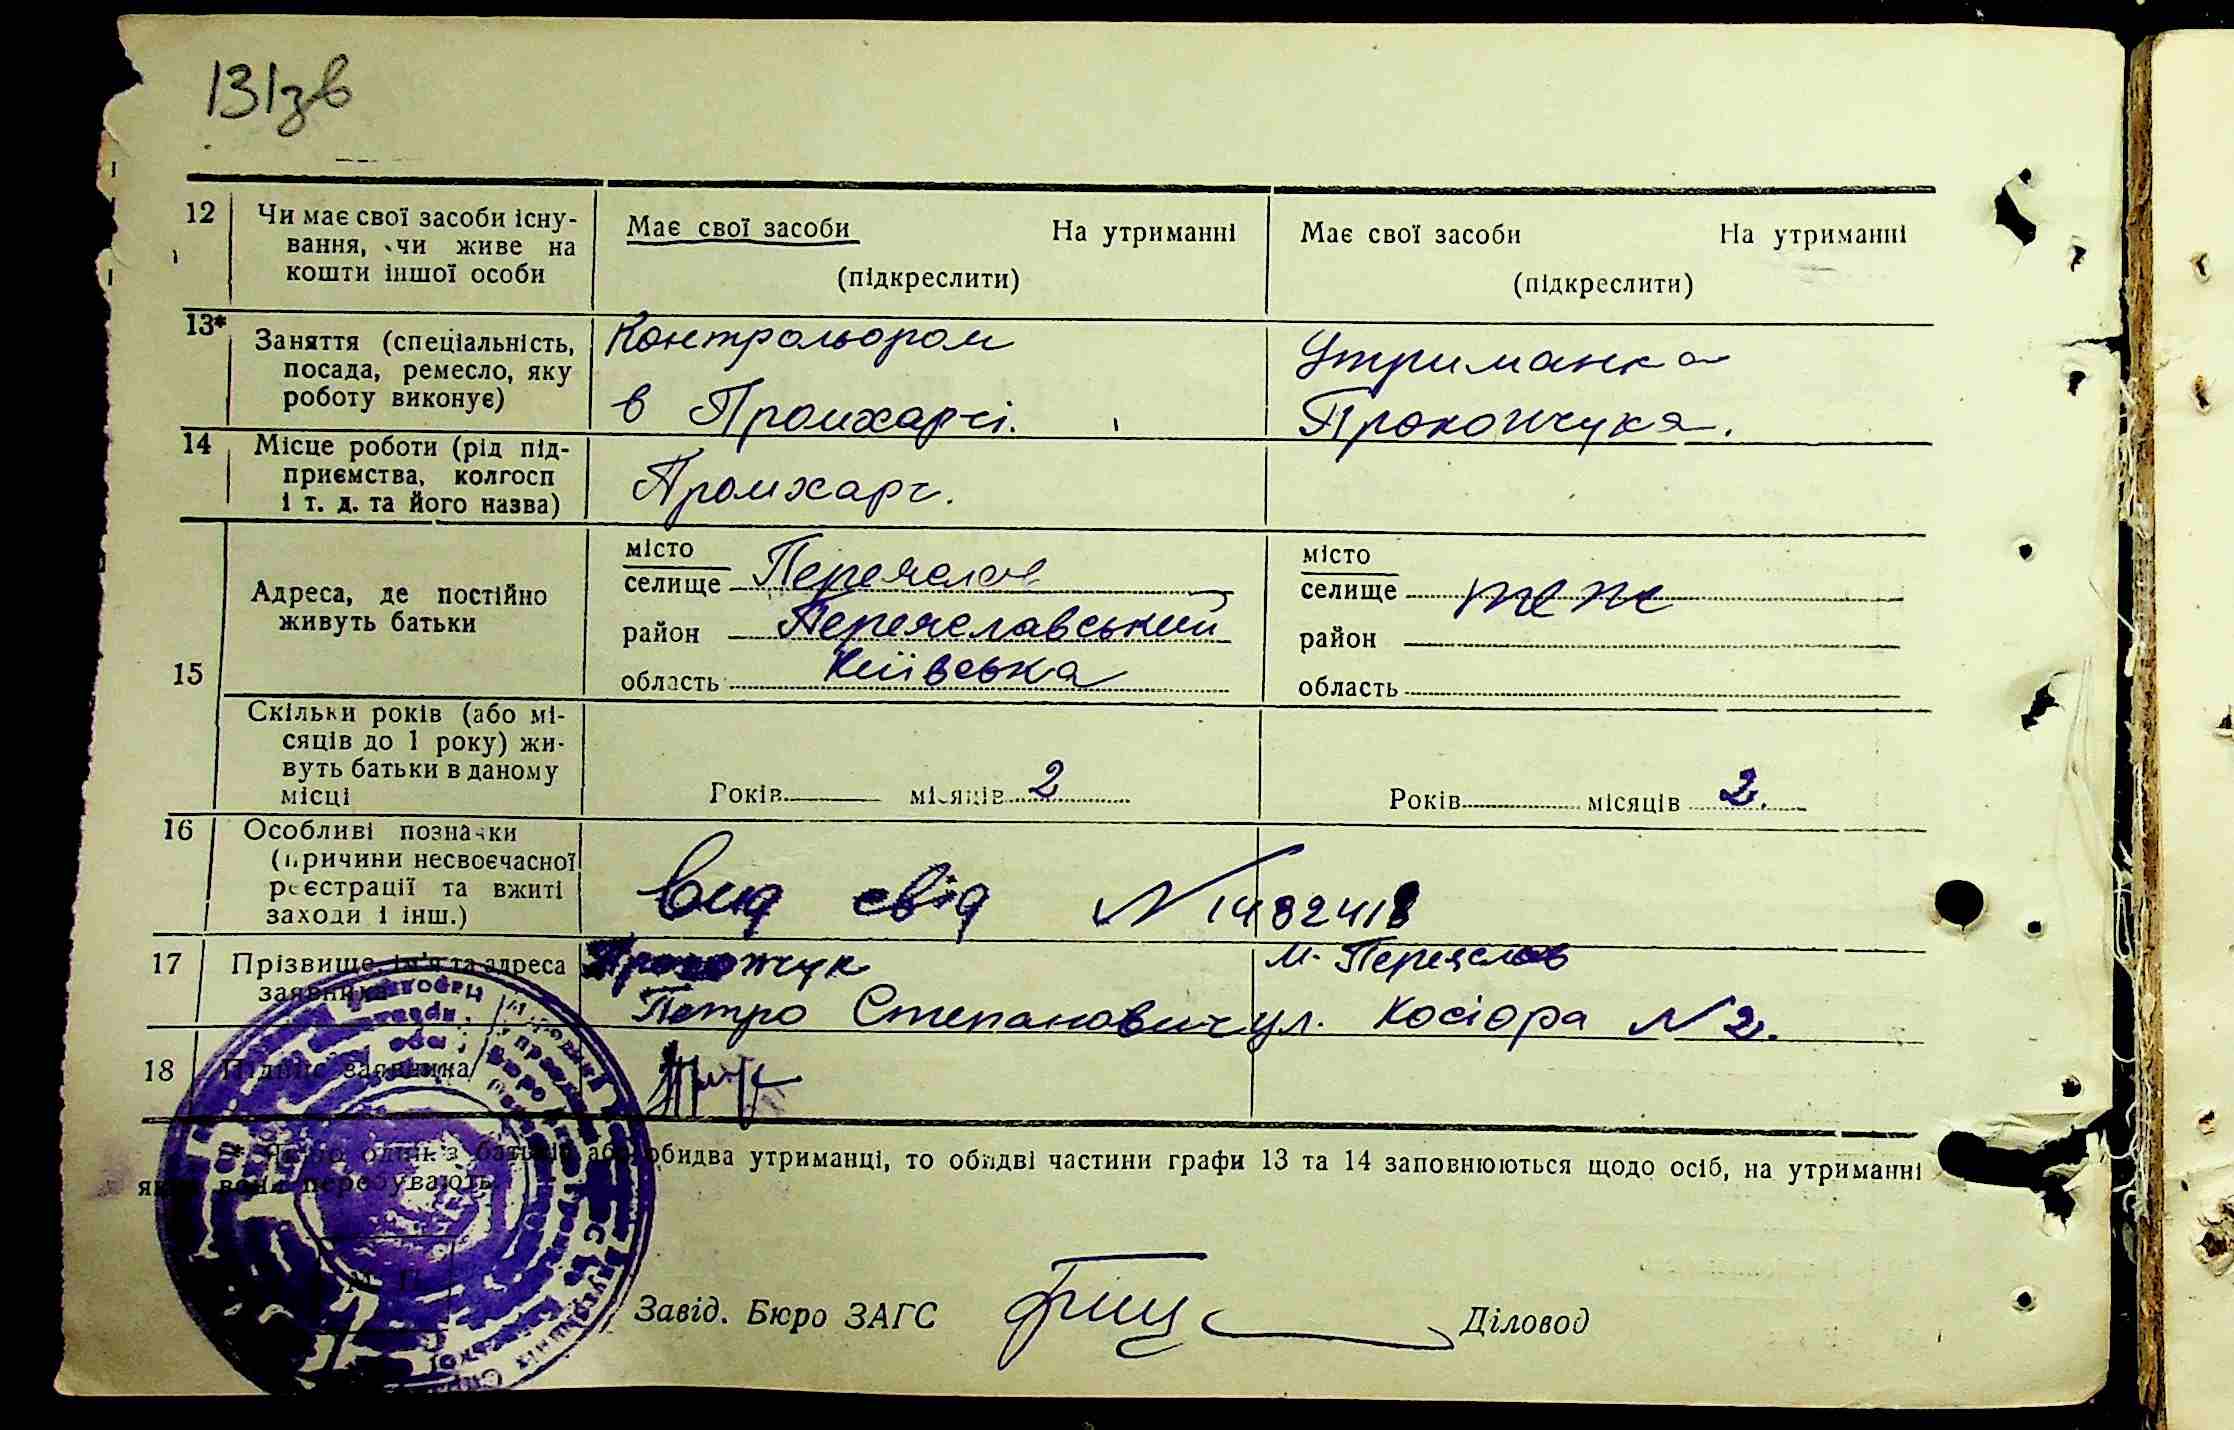 131зв
12 Чи має свої засоби існу-
вання, чи живе на
кошти іншої особи
Має свої засоби На утриманні
(підкреслити)
Має свої засоби На утриманні
(підкреслити)
13* Заняття (спеціальність,
посада, ремесло, яку
роботу виконує)
Контрольором
в Промхарчі.
Утриманка
Прокопчука.
14 Місце роботи (рід під-
приємства, колгосп
і т. д. та його назва)
Промхарч.
15
Адреса, де постійно
живуть батьки
місто
селище Переяслав
район Переяславський
область Київська
місто
селище теж
район
область
Скільки років (або мі-
сяців до 1 року) жи-
вуть батьки в даному
місці
Років місяців 2
Років місяців 2.
16 Особливі позначки
(причини несвоєчасної
реєстрації та вжиті
заходи і інш.)
Вид свід №
17 Прізвище, ім'я та адреса
заявника
Прокопчук
Петро Степанович
м. Переяслав
ул. Косіора № 2.
18 Підпис заявника
* Якщо один з батьків або обидва утриманці, то обидві частини графи 13 та 14 заповнюються щодо осіб, на утриманні
яких вони перебувають.
Завід. Бюро ЗАГС Діловод